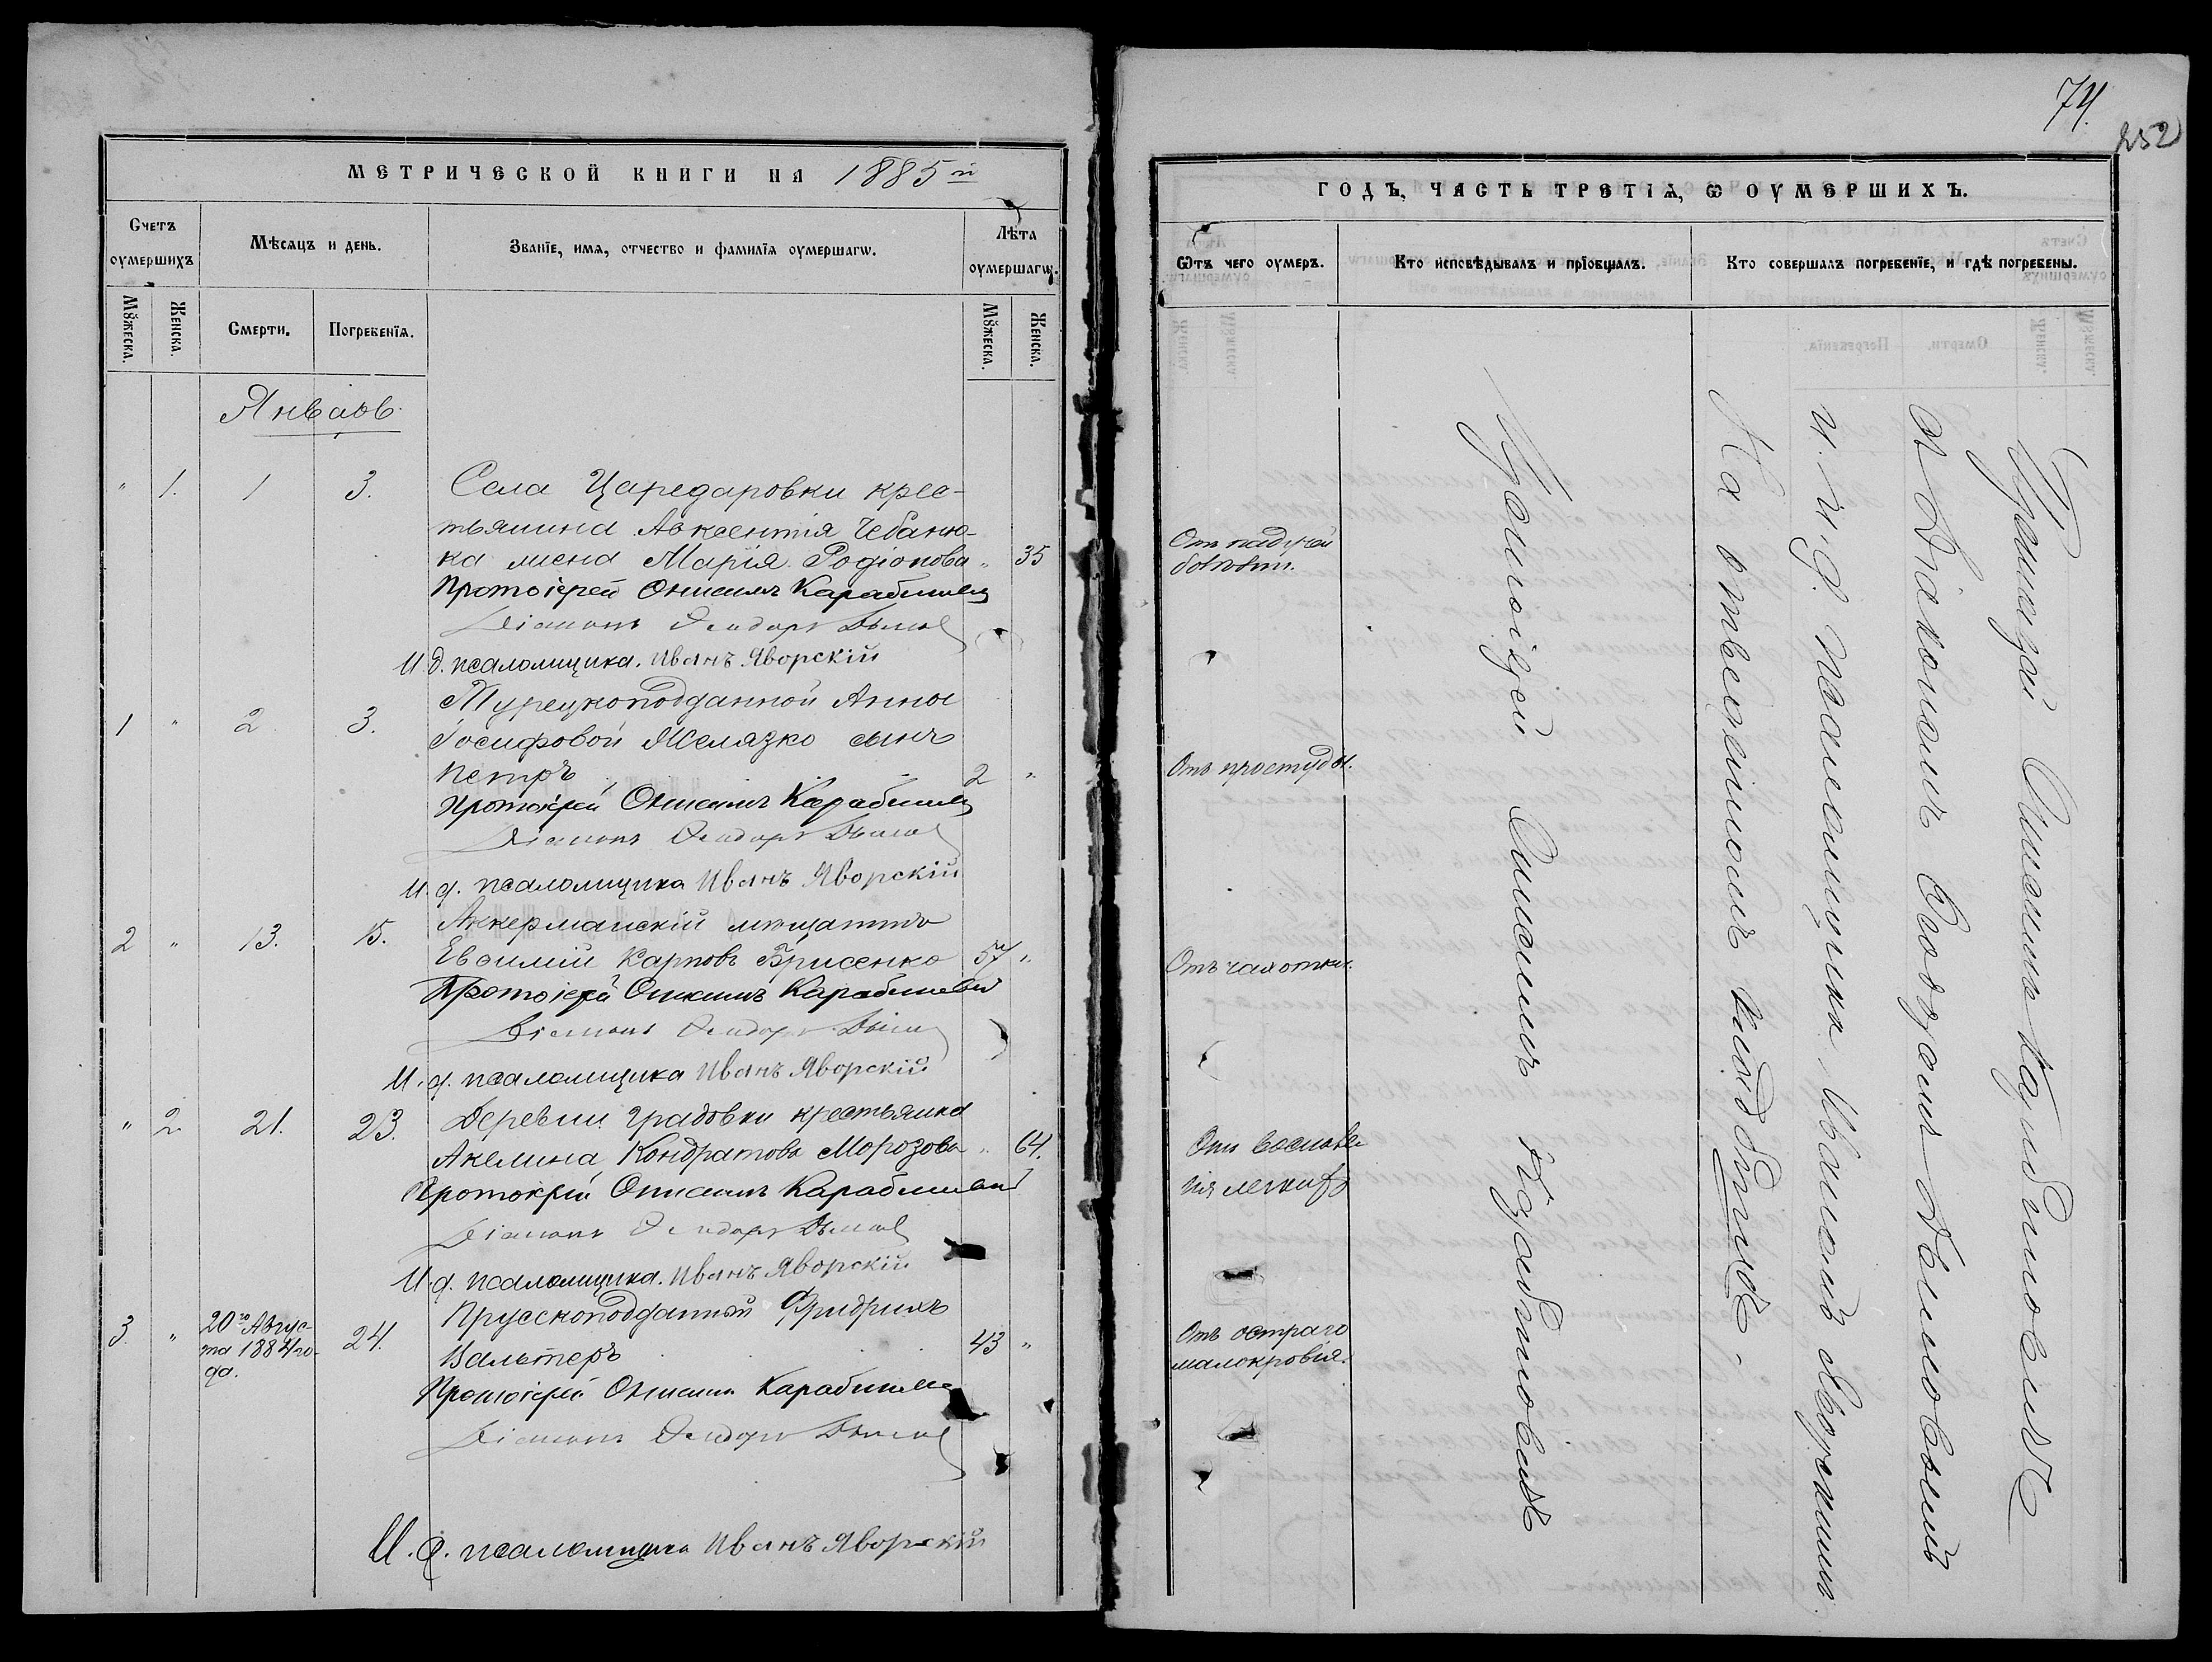 МЕТРИЧЕСКОЙ КНИГИ НА 1885 й
Счетъ оумершихъ
Мѣсяцъ и день.
Званіе, имя, отчество и фамилія оумершагѡ.
Лѣта оумершагѡ.
Мꙋжеска.
Женска.
Смерти.
Погребенїя.
Мꙋжеска.
Женска.
Январь
" 1. 1 3. Села Царедаровки крес-
тьянина Авксентія Чебаню-
ка жена Марія Родіонова " 35
Протоіерей Онисимъ Карабиневъ
Діаконъ Ѳеодоръ
И. д. псаломщика. Иванъ Яворскій
1 " 2 3. Турецкоподданной Анны
Іосифовой Желязко сынъ
Петръ 2 "
Протоіерей Онисимъ Карабиневъ
Діаконъ Ѳеодоръ
И. д. псаломщика Иванъ Яворскій
2 " 13. 15. Аккерманскій мѣщанинъ
Евѳимій Карповъ Грисенко 57 "
Протоіерей Онисимъ Карабиневъ
Діаконъ Ѳеодоръ
И. д. псаломщика Иванъ Яворскій
" 2. 21. 23. Деревни Градовки крестьянка
Акилина Кондратова Морозова " 64.
Протоіерей Онисимъ Карабиневъ
Діаконъ Ѳеодоръ
И. д. псаломщика. Иванъ Яворскій
3. " 20го Авгус-
та 1884 го-
да. 24. Прусскоподданный Фридрихъ
Вальтеръ 43 "
Протоіерей Онисимъ Карабиневъ
Діаконъ Ѳеодоръ
И. д. псаломщика Иванъ Яворскій
74.
252
ГОДЪ, ЧАСТЬ ТРЕТІѦ, Ѡ ОУМЕРШИХЪ.
Ѿтъ чего оумеръ.
Кто исповѣдывалъ и прїобщалъ.
Кто совершалъ погребенїе, и гдѣ погребены.
Отъ падучей
болѣзни.
Отъ простуды.
Отъ чахотки.
Отъ воспале-
нія легкихъ
Отъ остраго
малокровія.
Протоіерей Онисимъ
Протоіерей Онисимъ
съ Діакономъ Ѳеодоромъ
и. д. псаломщика Иваномъ Яворскимъ
На отведенномъ кладбищѣ.